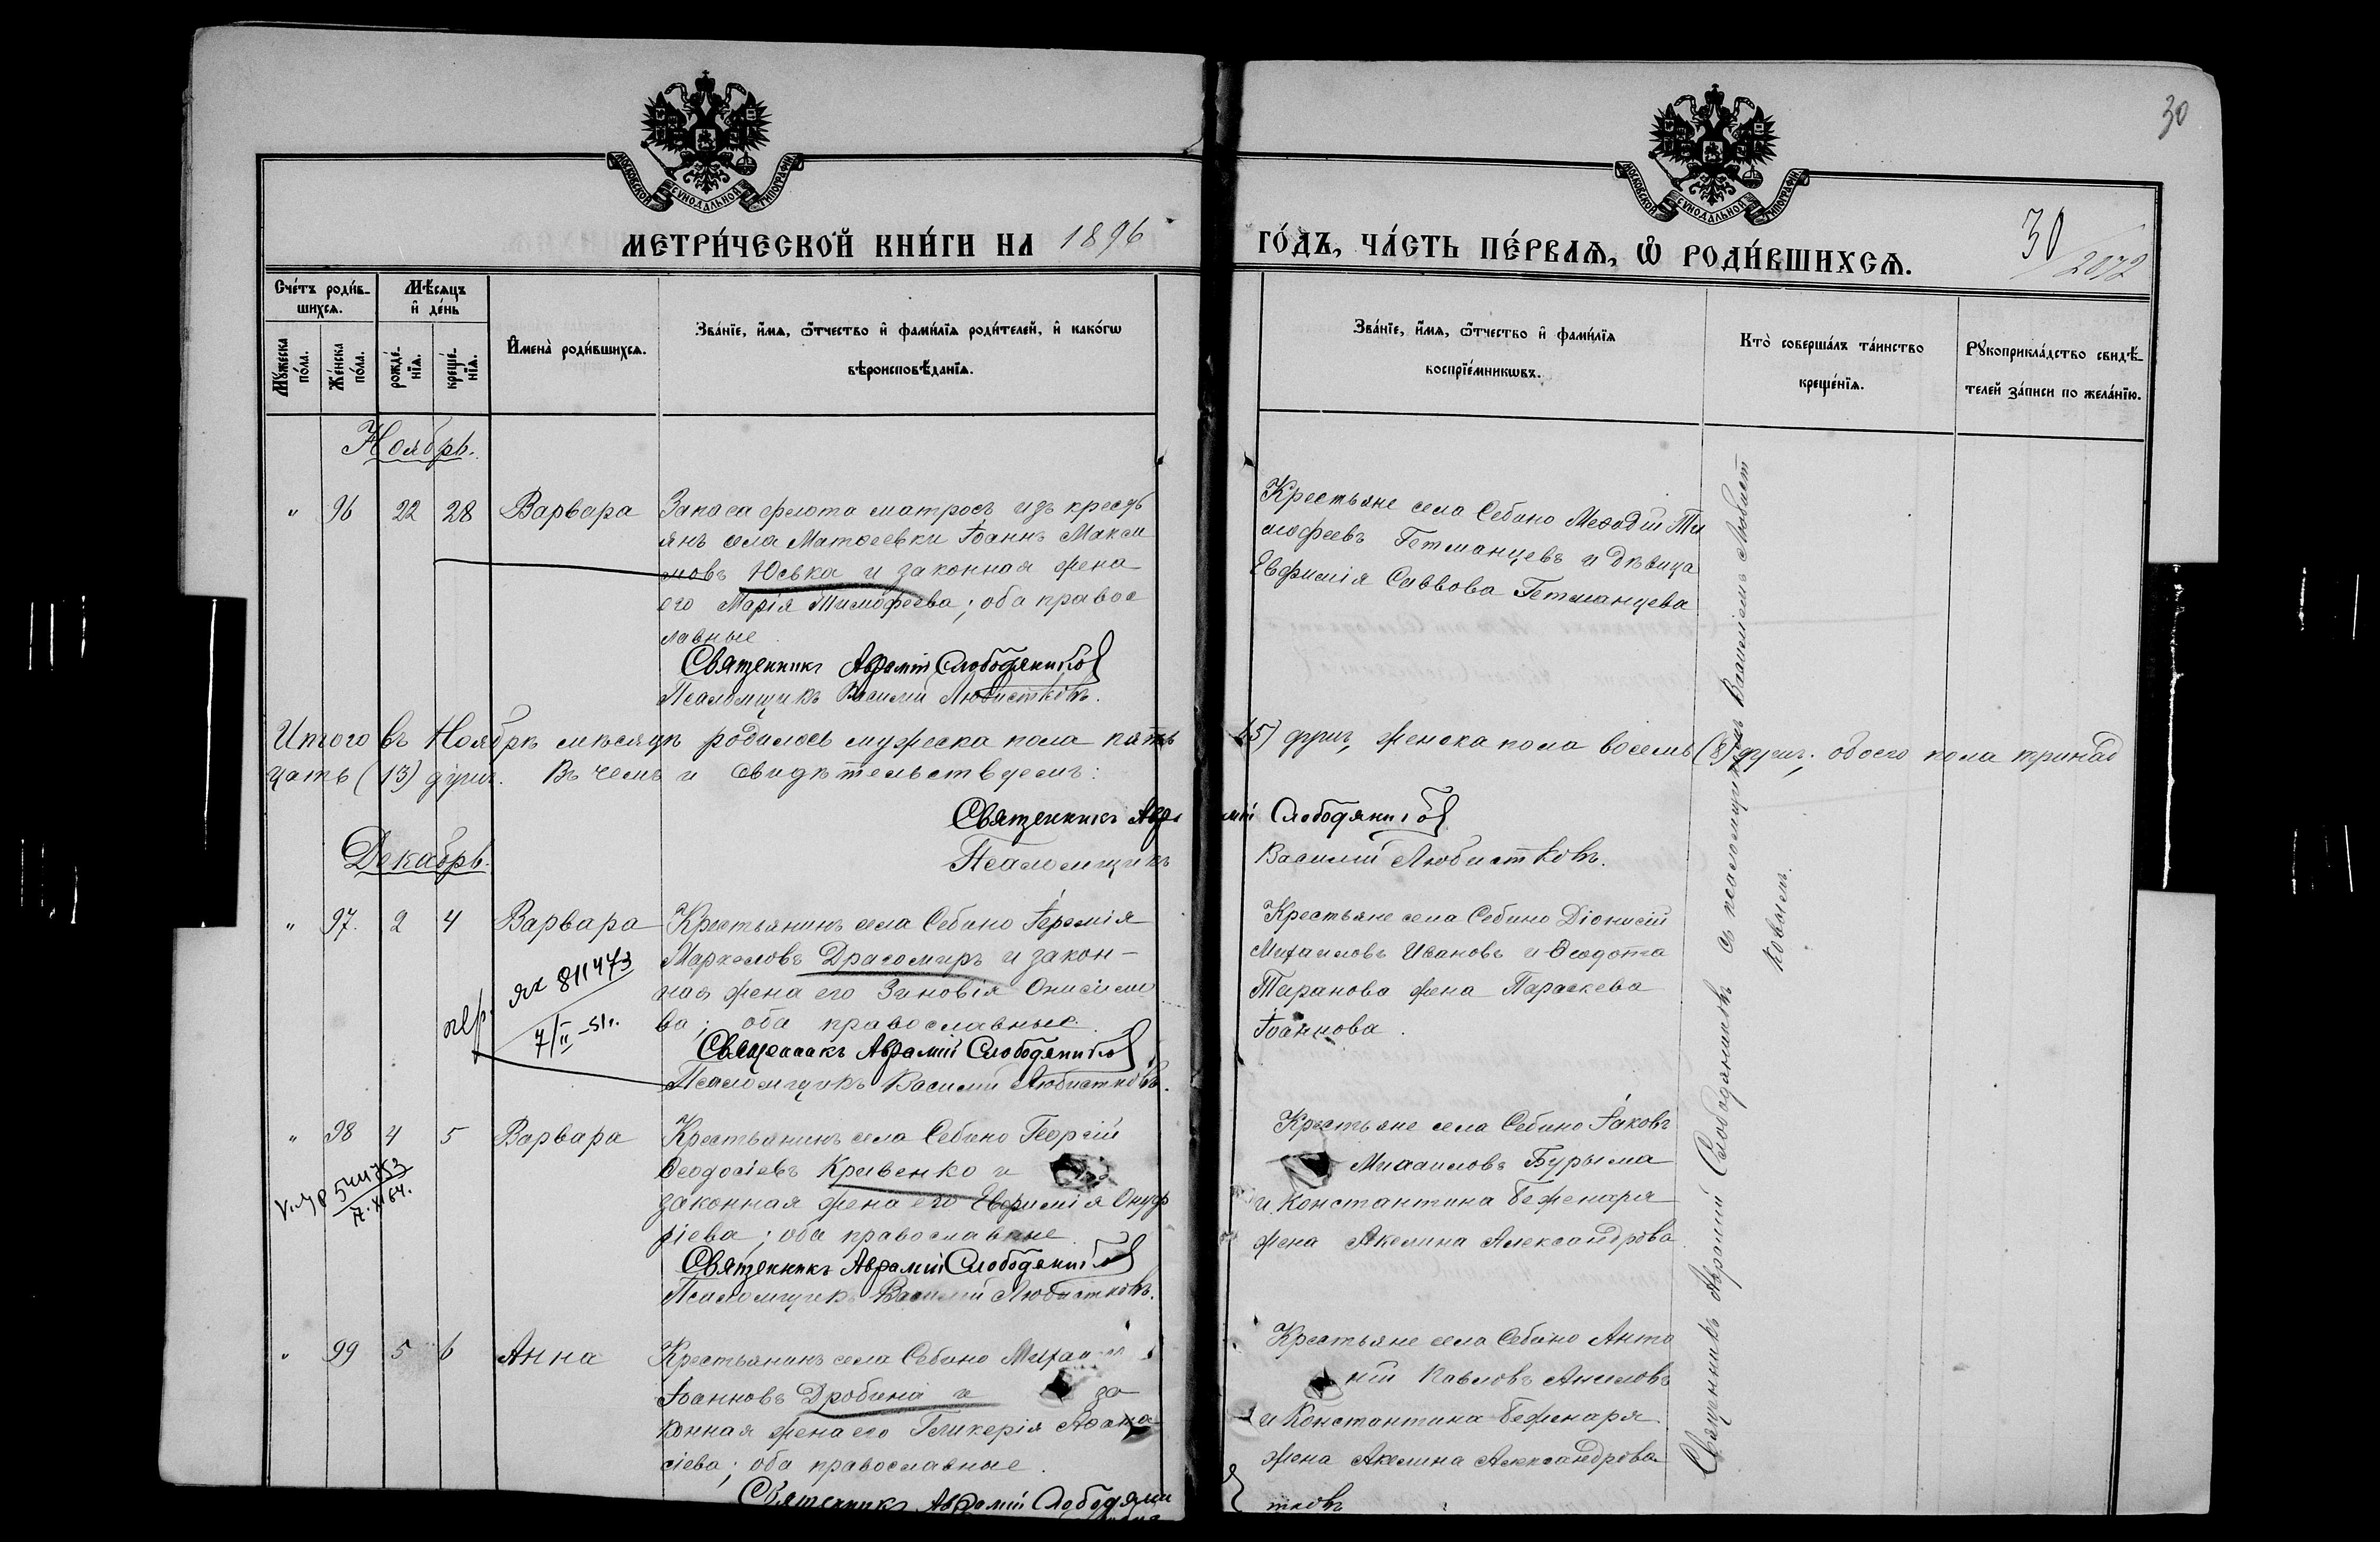 30
МОСКОВСКОЙ СѴНОДАЛЬНОЙ ТИПОГРАФІИ
МОСКОВСКОЙ СѴНОДАЛЬНОЙ ТИПОГРАФІИ
МЕТРИ́ЧЕСКОЙ КНИ́ГИ НА 1896
ГО́ДЪ, ЧА́СТЬ ПЕ́РВАЯ, Ѡ҆ РОДИ́ВШИХСЯ.
30/2072
Сче́тъ роди́в-
шихся.
Мѣ́сяцъ
и҆ де́нь
Му́жеска
по́ла.
Же́нска
по́ла.
рожде́-
нїя.
креще́-
нїя.
И҆мена̀ роди́вшихся.
Зва́нїе, и҆́мя, ѻ҆́тчество и҆ фами́лїя роди́телей, и҆ како́гѡ
вѣроисповѣ́данїя.
Зва́нїе, и҆́мя, ѻ҆́тчество и҆ фами́лїя
воспрїе́мникѡвъ.
Кто̀ соверша́лъ та́инство
креще́нїя.
Рукоприкла́дство свидѣ́-
телей за́писи по жела́нїю.
Ноябрь.
" 96 22 28 Варвара
Запаса флота матросъ изъ кресть
янъ села Матвеевки Іоаннъ Макси
мовъ Юська и законная жена
его Марія Тимофеева; оба правос
лавные
Священникъ Аврамій Слободяниковъ
Псаломщикъ Василій Любистковъ.
Крестьяне села Себино Меѳодій Ти
мофеевъ Гетманцевъ и дѣвица
Евфимія Саввова Гетманцева
Итого въ Ноябрѣ мѣсяцѣ родилось мужеска пола пять (5) душъ, женска пола восемь (8) душъ; обоего пола тринад
цать (13) душъ. Въ чемъ и свидѣтельствуемъ:
Священникъ Аврамій Слободяниковъ
Псаломщикъ Василій Любистковъ.
Декабрь.
" 97. 2 4 Варвара
ЯХ 811473
7/II-51г.
Крестьянинъ села Себино Іеремія
Маркеловъ Драгомиръ и закон-
ная жена его Зиновія Онисимо
ва; оба православные.
Священникъ Аврамій Слободяниковъ
Псаломщикъ Василій Любистковъ.
Крестьяне села Себино Діонисій
Михаиловъ Ивановъ и Ѳеодота
Таранова жена Параскева
Іоаннова.
" 98 4 5 Варвара
Крестьянинъ села Себино Георгій
Ѳеодосіевъ Кривенко и
законная жена его Евфимія Онуф
ріева; оба православные.
Священникъ Аврамій Слободяниковъ
Псаломщикъ Василій Любистковъ.
Крестьяне села Себино Іаковъ
Михаиловъ Бурыма
и Константина Беженаря
жена Акелина Александрова
" 99 5 6 Анна
Крестьянинъ села Себино Михаил
Іоанновъ Дробина и за
конная жена его Гликерія Аѳана
сіева; оба православные.
Священникъ Аврамій Слободяни
Крестьяне села Себино Анто
ній Павловъ
и Константина Беженаря
жена Акелина Александрова
тковъ
Священникъ Аврамій Слободяниковъ съ псаломщикомъ Василіемъ Любист
ковымъ.